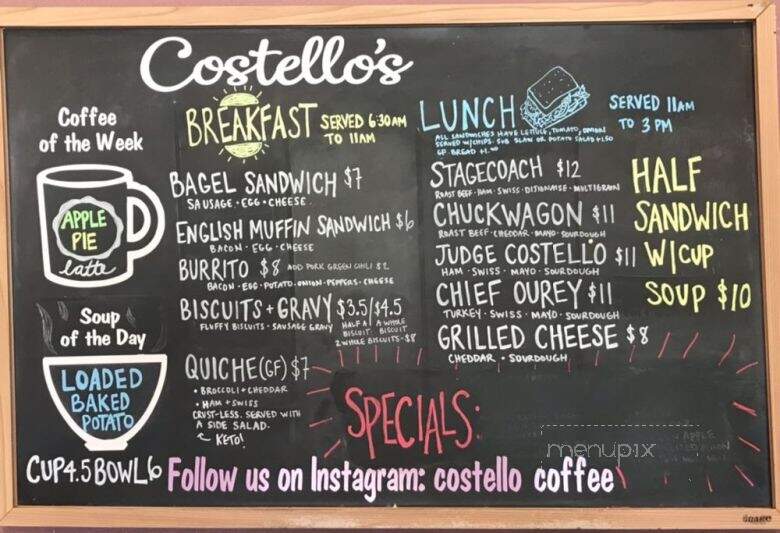 Costello's
Coffee
of the Week
APPLE
PIE
latte
Soup
of the Day
LOADED
BAKED
POTATO
CUP 4.5 BOWL 6
BREAKFAST SERVED 6:30AM
TO 11AM
BAGEL SANDWICH $7
SAUSAGE • EGG • CHEESE
ENGLISH MUFFIN SANDWICH $6
BACON • EGG • CHEESE
BURRITO $8 ADD PORK GREEN CHILI $2
BACON • EGG • POTATO • ONION • PEPPERS • CHEESE
BISCUITS + GRAVY $3.5/$4.5
FLUFFY BISCUITS • SAUSAGE GRAVY
HALF A BISCUIT
A WHOLE BISCUIT
2 WHOLE BISCUITS - $8
QUICHE (GF) $7
• BROCCOLI + CHEDDAR
• HAM + SWISS
CRUST-LESS. SERVED WITH
A SIDE SALAD.
KETO!
LUNCH
SERVED 11AM
TO 3 PM
ALL SANDWICHES HAVE LETTUCE, TOMATO, ONION
SERVED W/CHIPS. SUB SLAW OR POTATO SALAD +1.50
GF BREAD +1.00
STAGECOACH $12
ROAST BEEF • HAM • SWISS • DIJONAISE • MULTIGRAIN
CHUCKWAGON $11
ROAST BEEF • CHEDDAR • MAYO • SOURDOUGH
JUDGE COSTELLO $11
HAM • SWISS • MAYO • SOURDOUGH
CHIEF OUREY $11
TURKEY • SWISS • MAYO • SOURDOUGH
GRILLED CHEESE $8
CHEDDAR • SOURDOUGH
HALF
SANDWICH
W/CUP
SOUP $10
SPECIALS:
APPLE
menupix
Follow us on Instagram: costello coffee